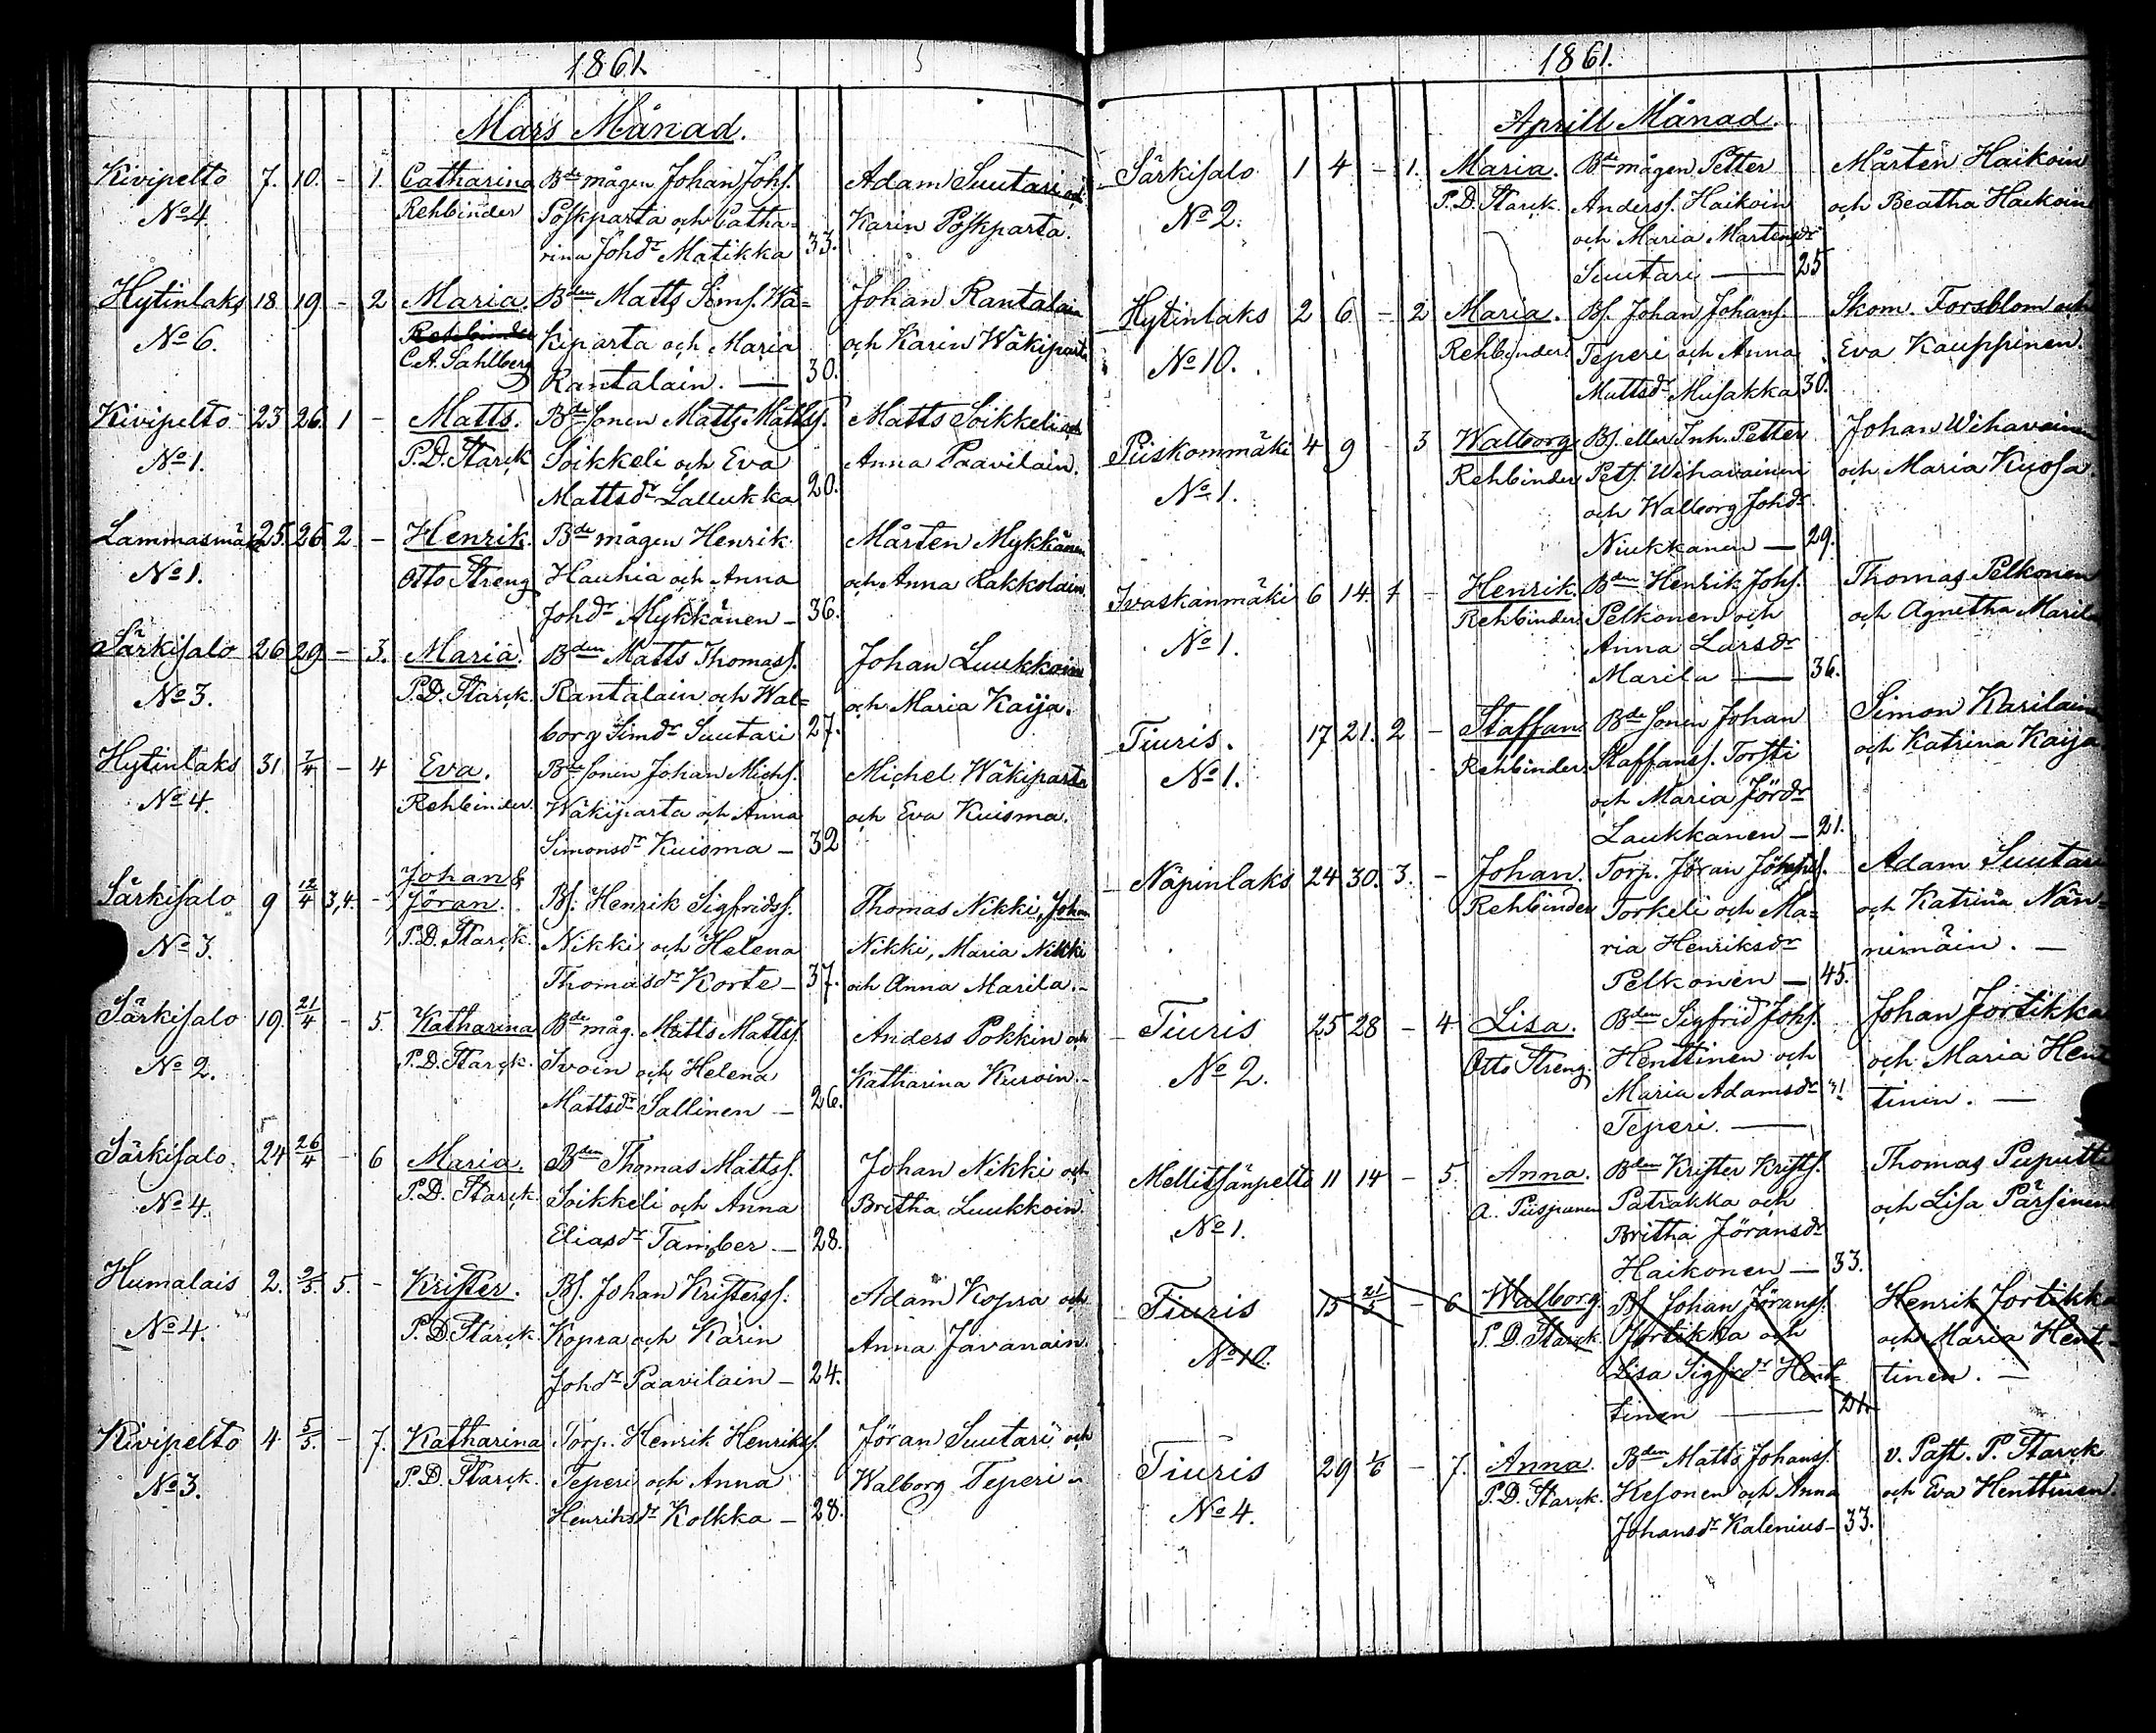 1861.
Mars Månad.
Kivipelto 7. 10. - 1. Catharina Bde mågen Johan Johs. Adam Suutari och
No 4. Rehbinder Pöskparta och Catha- Karin Pöskparta.
rina Johdr Matikka 33.
Hytinlaks 18 19 - 2 Maria. Bden Matts Sims. Wä- Johan Rantalain
No 6. Rehbinder Kiparta och Maria och Karin Wäkiparta
C.A. Sahlberg Rantalain. — 30.
Kivipelto 23 26. 1 - Matts. Bde sonen Matts Mattss. Matts Soikkeli och
No 1. P.D. Starck Soikkeli och Eva Anna Paavilain.
Mattsdr Lallukka 20.
Lammasmäki 25. 26 2 - Henrik. Bde mågen Henrik Mårten Mykkänen
No 1. Otto Streng Hauhia och Anna och Anna Rakkolain.
Johdr Mykkänen - 36.
Särkisalo 26 29 - 3. Maria. Bden Matts Thomass. Johan Luukkoin
No 3. P.D. Starck. Rantalain och Wal- och Maria Kaija.
borg Simdr Suutari 27.
Hytinlaks 31 7/4 - 4 Eva. Bde sonen Johan Michs. Michel Wäkiparta
No 4. Rehbinder. Wäkiparta och Anna och Eva Kuisma.
Simonsdr Kuisma - 32
Johan &
Särkisalo 9 12/4 3,4. - Jöran. Bs. Henrik Sigfridss. Thomas Nikki, Johan
No 3. P.D. Starck. Nikki och Helena Nikki, Maria Nikki
Thomasdr Korte - 37. och Anna Marila. -
Särkisalo 19. 21/4 - 5. Katharina Bde måg. Matts Mattss. Anders Pokkin och
No 2. P.D. Starck. Ivoin och Helena Katharina Kuroin. -
Mattsdr Sallinen - 26.
Särkisalo. 24 26/4 - 6 Maria. Bden Thomas Mattss. Johan Nikki och
No 4. P.D. Starck. Soikkeli och Anna Britha Luukkoin.
Eliasdr Tamber - 28.
Humalais 2. 9/5. 5. - Krister. Bs. Johan Kristerss. Adam Kopra och
No 4. P.D. Starck. Kopra och Karin Anna Javanain.
Johdr Paavilain - 24.
Kivipelto 4 5/5. - 7. Katharina Torp. Henrik Henrikss. Jöran Suutari och
No 3. P.D. Starck. Teperi och Anna Walborg Teperi -
Henriksdr Kolkka - 28.
1861.
Aprill Månad.
Särkisalo 1 4 - 1. Maria. Bde mågen Petter Mårten Haikoin
No 2. P.D. Starck. Anderss. Haikoin och Beatha Haikoin
och Maria Martensdr
Suutari — 25
Hytinlaks 2 6 - 2 Maria. Bs. Johan Johans. Skom. Forsblom och
No 10. Rehbinder Teperi och Anna Eva Kauppinen.
Mattsdr Musakka 30.
Piiskommäki 4 9 - 3 Walborg Bs. eller Inh. Petter Johan Wihavainen
No 1. Rehbinder Petts. Wihavainen och Maria Kuosa.
och Walborg Johdr
Niukkanen — 29.
Ivaskanmäki 6 14. 1 - Henrik. Bden Henrik Johs. Thomas Pelkonen
No 1. Rehbinder Pelkonen och och Agnetha Marila
Anna Larsdr
Marila — 36.
Tiuris. 17 21. 2 - Staffan. Bde sonen Johan Simon Karilain
No 1. Rehbinder. Staffanss. Torsti och Katrina Kaija
och Maria Jördr
Laukkanen - 21.
Näpinlaks 24 30. 3. - Johan. Torp. Jöran Adam Suutari
Rehbinder Torkeli och Ma- och Katrina Nän-
ria Henriksdr nimäin. —
Pelkonen — 45.
Tiuris 25 28 - 4 Lisa. Bden Sigfrid Johs. Johan Jortikka
No 2. Otto Streng. Henttinen och och Maria Hent
Maria Adamsdr 31 tinin. —
Teperi. —
Mellitsänpelto 11 14 - 5. Anna. Bden Krister Krists. Thomas Puputti
No 1. A. Piispanen Patrakka och och Lisa Pärsinen
Britha Jöransdr
Haikonen — 33.
Tiuris 15 21/5 - 6 Walborg. Bs. Johan Jöranss. Henrik Jortikka
No 10. P.D. Starck. Jortikka och och Maria Hent-
Lisa Sigfrdr Hent- tinen. —
tinen — 21.
Tiuris 29 1/6 - 7. Anna. Bden Matts Johanss. v. Past. P. Starck
No 4. P.D. Starck. Kesonen och Anna och Eva Henttinen.
Johansdr Kalenius - 33.